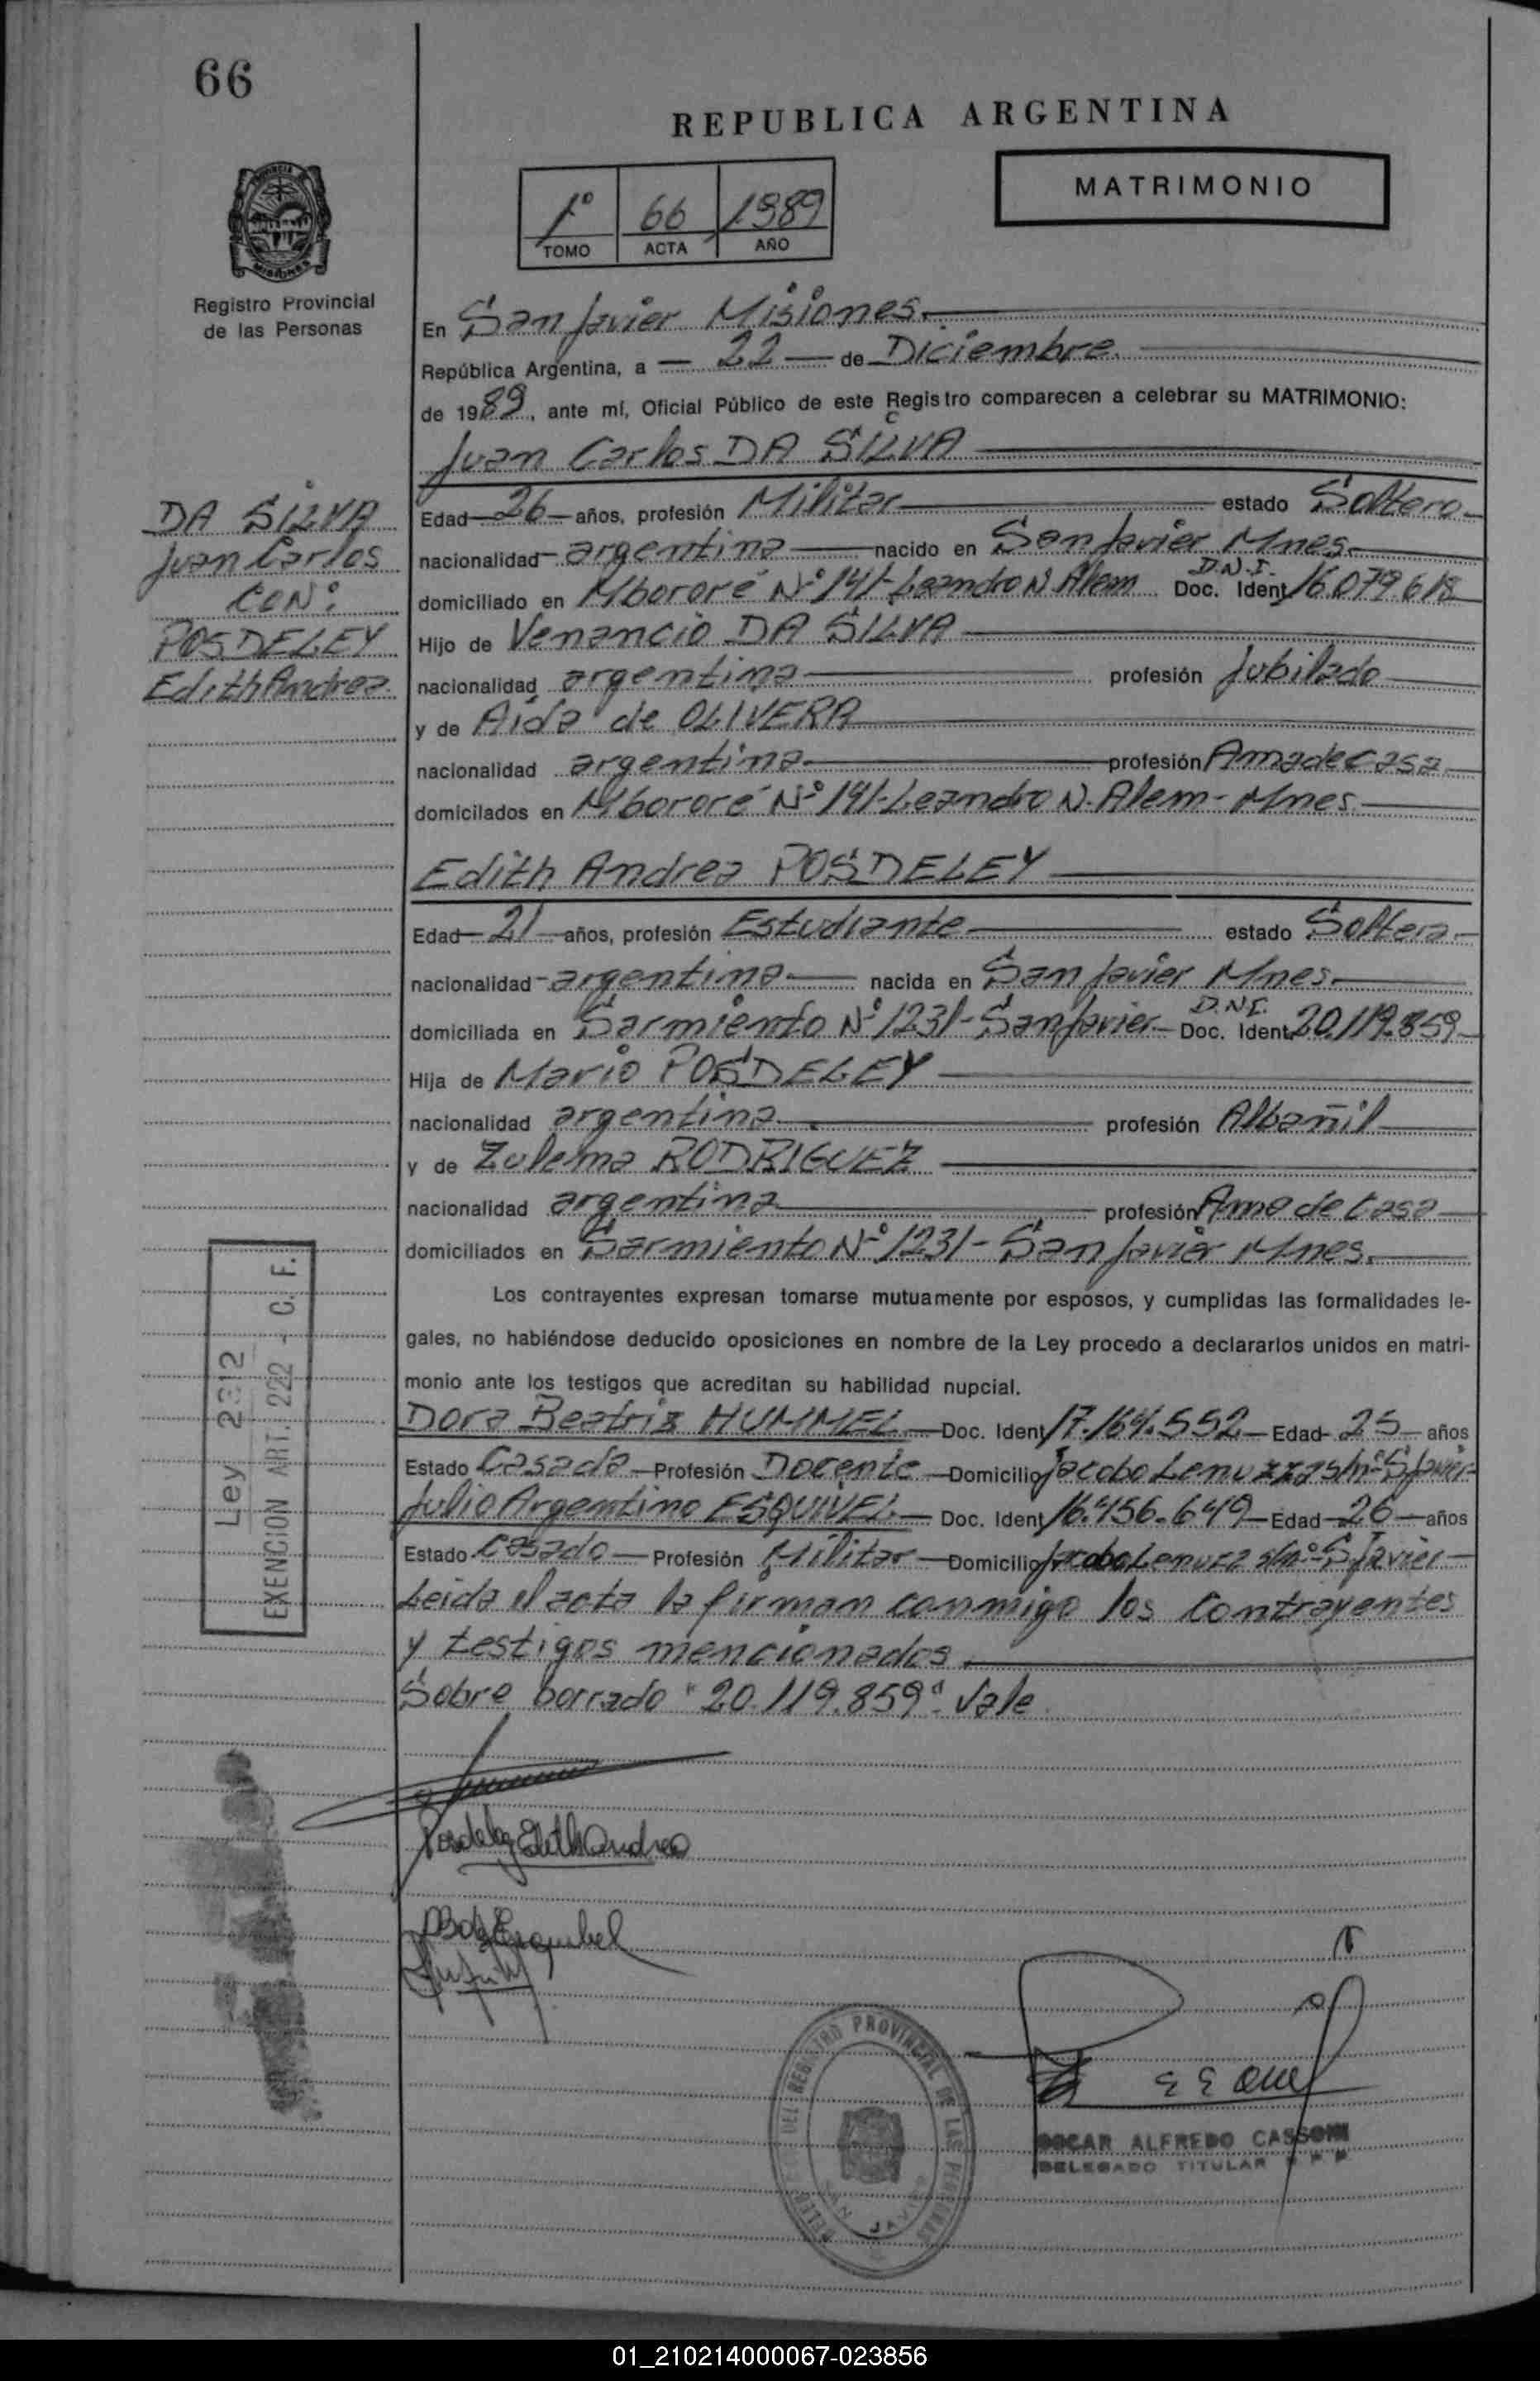 66
REPUBLICA ARGENTINA
MATRIMONIO
1º 66 1989
TOMO ACTA AÑO
Registro Provincial
de las Personas
En San Javier Misiones
República Argentina, a — 22 — de Diciembre
de 1989, ante mí, Oficial Público de este Registro comparecen a celebrar su MATRIMONIO:
Juan Carlos DA SILVA
DA SILVA
Juan Carlos
CON:
POSDELEY
Edith Andrea
Edad 26 años, profesión Militar estado Soltero
nacionalidad argentina nacido en San Javier Mnes
domiciliado en Mbororé Nº 141-Leandro N. Alem D.N.I. Doc. Ident 16.079.618
Hijo de Venancio DA SILVA
nacionalidad argentina profesión Jubilado
y de Aida de OLIVERA
nacionalidad argentina profesión Ama de casa
domicilados en Mbororé Nº 141-Leandro N. Alem - Mnes
Edith Andrea POSDELEY
Edad 21 años, profesión Estudiante estado Soltera
nacionalidad argentina nacida en San Javier Mnes
domiciliada en Sarmiento Nº 1231-San Javier D.N.I. Doc. Ident 20.119.859
Hija de Mario POSDELEY
nacionalidad argentina profesión Albañil
y de Zulema RODRIGUEZ
nacionalidad argentina profesión Ama de Casa
domiciliados en Sarmiento Nº 1231-San Javier Mnes.
Los contrayentes expresan tomarse mutuamente por esposos, y cumplidas las formalidades le-
gales, no habiéndose deducido oposiciones en nombre de la Ley procedo a declararlos unidos en matri-
monio ante los testigos que acreditan su habilidad nupcial.
Dora Beatriz HUMMEL Doc. Ident 17.164.552 Edad 25 años
Estado Casada Profesión Docente Domicilio Jacobo Lenuzza s/nº S Javier
Julio Argentino ESQUIVEL Doc. Ident 16.456.649 Edad 26 años
Estado Casado Profesión Militar Domicilio Jacobo Lenuzza s/nº S Javier
Leida el acta la firman conmigo los Contrayentes
y testigos mencionados
Sobre borrado "20.119.859" Vale
Ley 2312
EXENCION ART. 222 - C. F.
Posdeley Edith Andrea
REGISTRO PROVINCIAL DE LAS PERSONAS
SAN JAVIER
OSCAR ALFREDO CASSONI
DELEGADO TITULAR
01_210214000067-023856